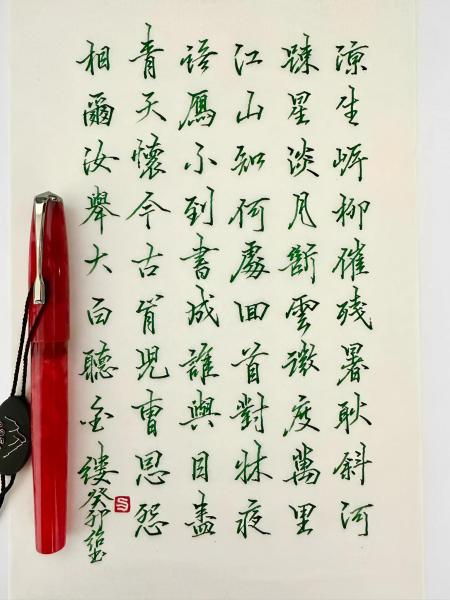 涼生岸柳催殘暑耿斜河
踈星淡月斷雲微度萬里
江山知何處回首對牀夜
語鴈不到書成誰與目盡
青天懷今古肯兒曹恩怨
相爾汝舉大白聽金縷癸卯